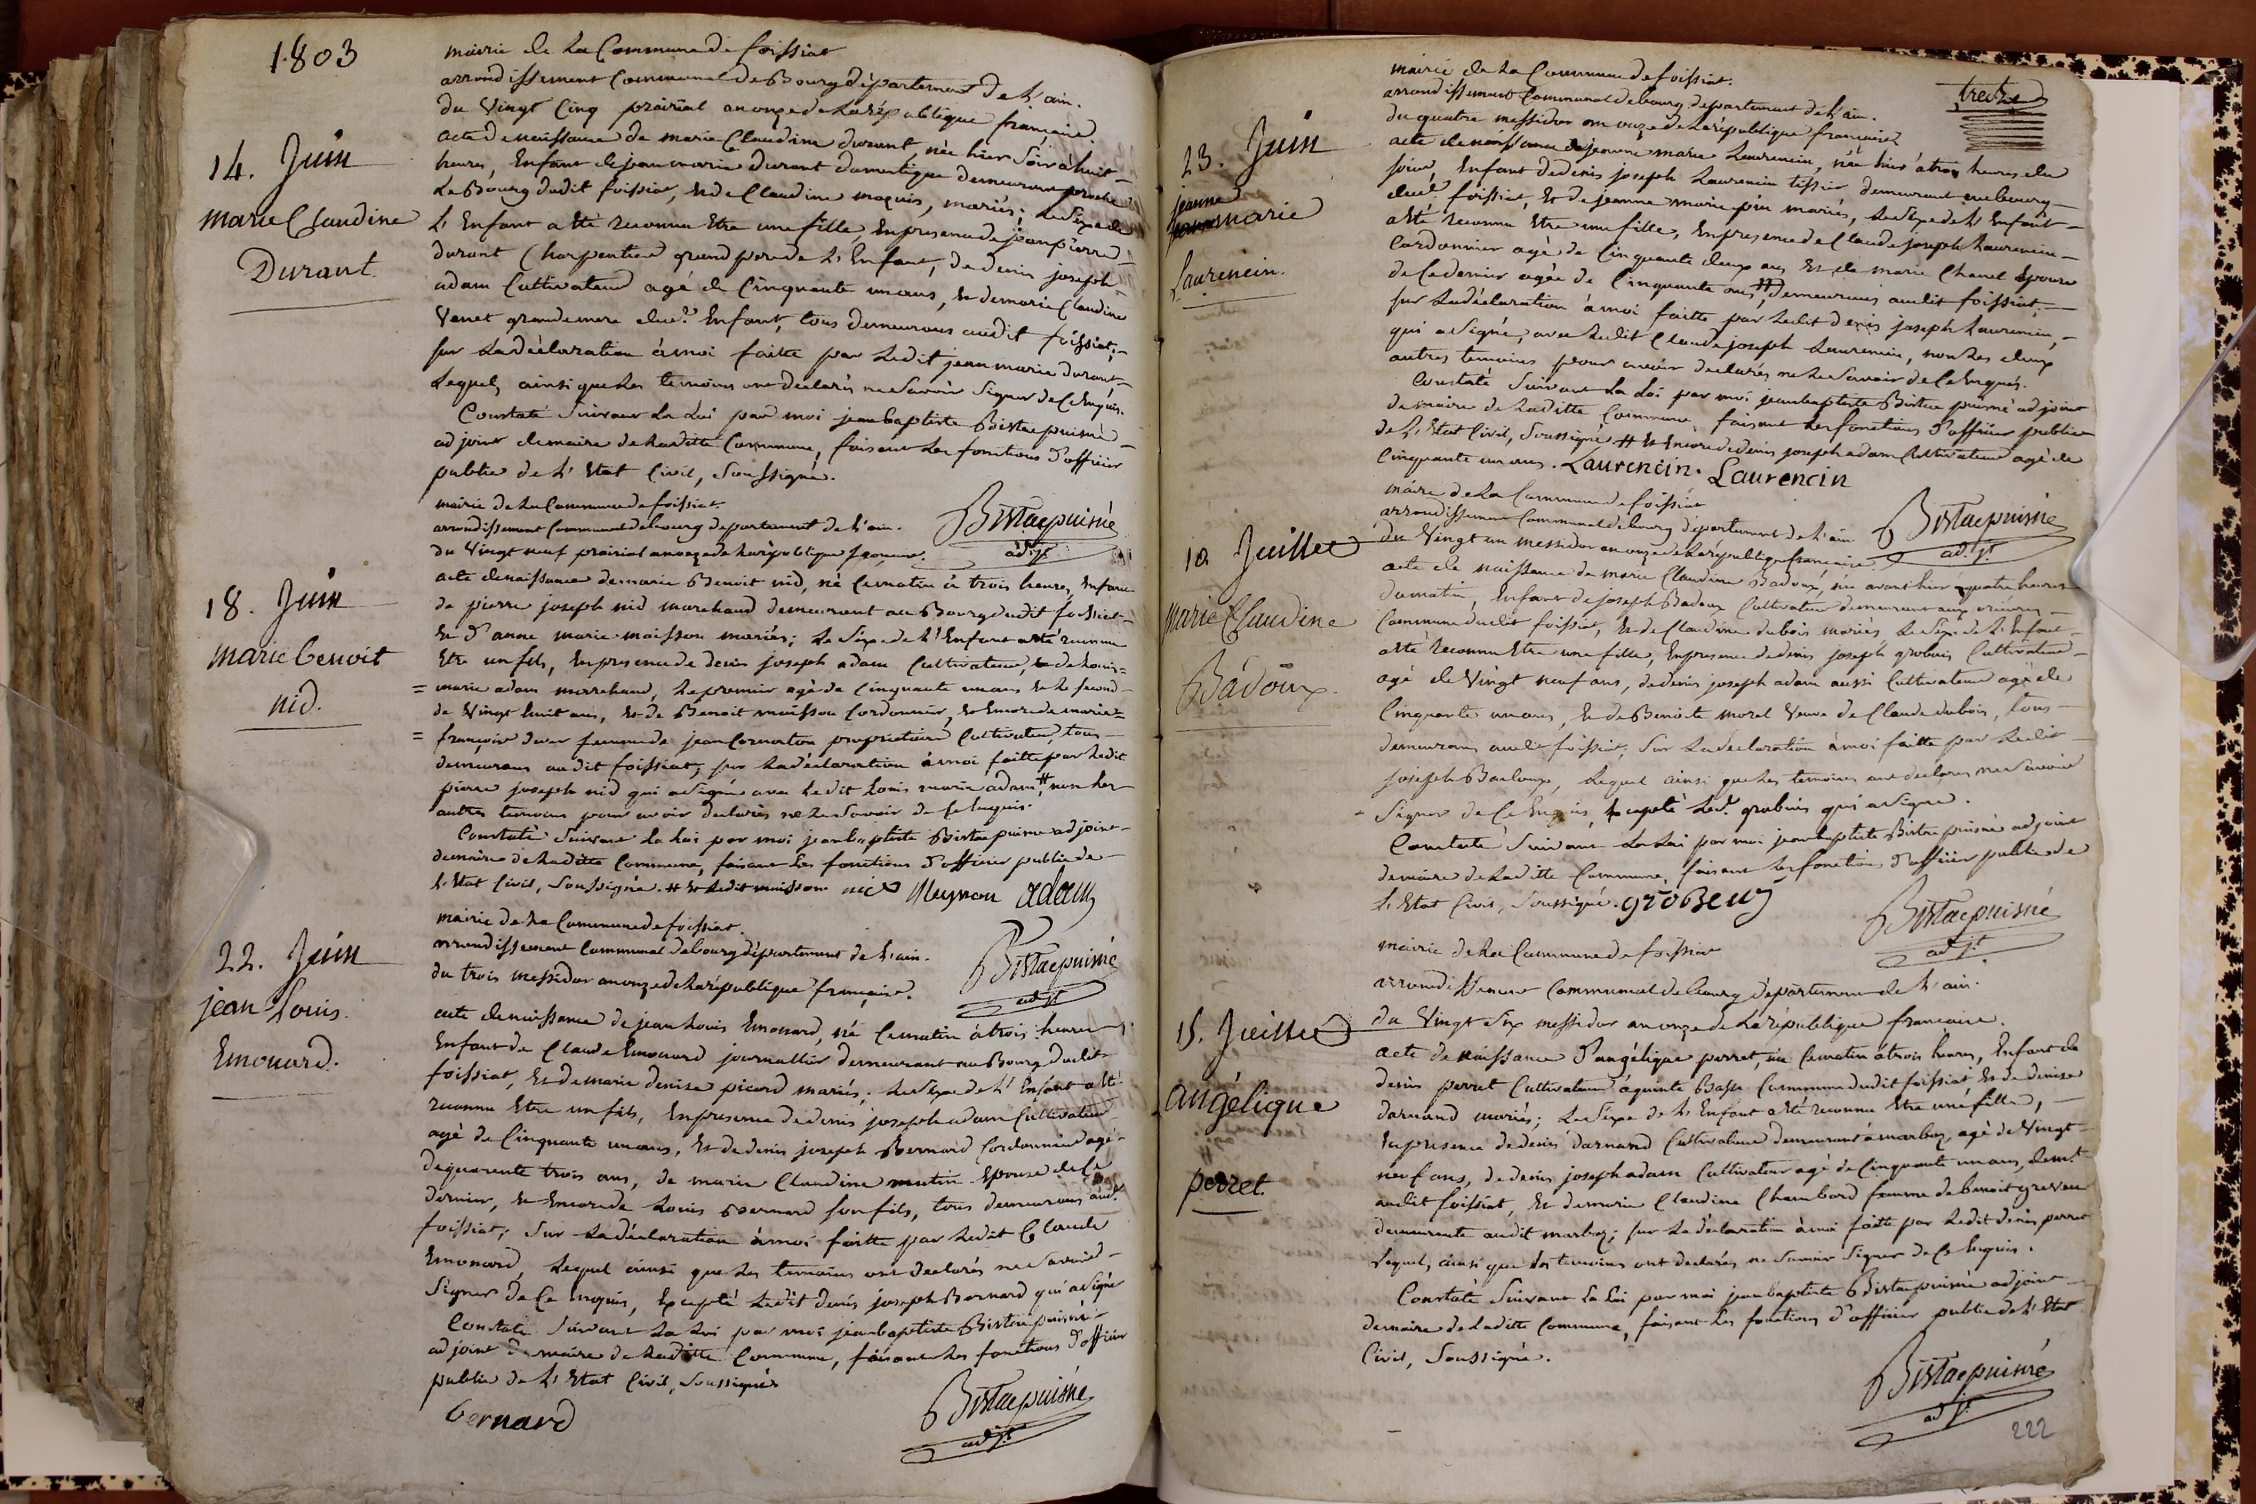 1803
mairie de la Commune de foissiat
arrondissement Communal de Bourg département de l'ain.
du Vingt Cinq prairial an onze de la république francaise
14. Juin
marie Claudine
Durant
acte de naissance de marie Claudine durant, née hier soir à huit
heures, Enfant de jean marie durant domestique demeurant proche
Le Bourg dudit foissiat, et de Claudine moquis, mariés; le sexe de
L'Enfant a été reconnu Etre une fille, En presence de jean pierre
durant Charpentier grand pere de L'Enfant, de denis joseph
adam Cultivateur agé de Cinquante un ans, et de marie Claudine
Venet grande mere dud.t Enfant, tous demeurans audit foissiat;
sur la déclaration à moi faitte par ledit jean marie durant
Lequel, ainsi que les temoins ont declarés ne savoir signer de ce Enquis.
Constaté Suivant La Loi par moi jean baptiste Bistac puisné
adjoint de maire de laditte Commune, faisant les fonctions d'officier
public de L'Etat Civil, Soussigné.
Bistac puisné
adj.t
mairie de la Commune de foissiat.
arrondissement Communal de bourg departement de l'ain.
du Vingt neuf prairial an onze de la république francaise.
18. Juin
marie benoit
nid.
acte de naissance de marie Benoit nid, né Ce matin à trois heures, Enfant
de pierre joseph nid marchand demeurant au Bourg dudit foissiat
Et d'anne marie maisson mariés; Le sexe de L'Enfant a été reconnu
Etre un fils, En presence de denis joseph adam Cultivateur, et de Louis=
= marie adam marchand, Le premier agé de Cinquante un ans Et le second
de Vingt huit ans, Et de Benoit maisson Cordonnier, Et Encore de marie=
= francoise femme de jean Cornaton propriétaire Cultivateur, tous
demeurans audit foissiat; sur la déclaration à moi faitte par ledit
pierre joseph nid qui a signé avec ledit Louis marie adam, # non les
autres temoins pour avoir declarés ne le Savoir de Ce Enquis.
Constaté Suivant la Loi par moi jean baptiste Bistac puisné adjoint
de maire de laditte Commune, faisant les fonctions d'officier public de
L'Etat Civil, Soussigné. # Et Ledit maisson nid Meynon adam
Bistac puisné
adj.t
mairie de la Commune de foissiat.
arrondissement Communal de bourg département de l'ain.
du trois messidor an onze de la république francaise.
22. Juin
jean Louis
Emonard.
acte de naissance de jean Louis Emonard, né Ce matin à trois heures
Enfant de Claude Emonard journallier demeurant au Bourg dudit
foissiat, Et de marie denise picard mariés; Le sexe de L'Enfant a été
reconnu Etre un fils, En presence de denis joseph adam Cultivateur
agé de Cinquante un ans, Et de denis joseph Bernard Cordonnier agé
de quarente trois ans, de marie Claudine mutin Epouse de Ce
dernier, Et Encore de Louis Bernard son fils, tous demeurans aud.t
foissiat; Sur la déclaration à moi faitte par ledit Claude
Emonard, Lequel ainsi que les temoins ont declarés ne Savoir
signer de Ce Enquis, Excepté Ledit denis joseph Bernard qui a signé
Constaté Suivant La Loi par moi jean baptiste Bistac puisné
adjoint de maire de laditte Commune, faisant les fonctions d'officier
public de L'Etat Civil, Soussigné
bernard
Bistac puisné
adj.t
treize
mairie de la Commune de foissiat.
arrondissement Communal de bourg departement de l'ain.
du quatre messidor an onze de la république francaise
23. Juin
jeanne
marie
Laurencin.
acte de naissance de jeanne marie Laurencin, née hier à trois heures du
soir, Enfant de denis joseph Laurencin tissier demeurant au bourg
dud.t foissiat, Et de jeanne marie mariés, Le sexe de L'Enfant
a été reconnu Etre une fille, En presence de Claude joseph Laurencin
Cordonnier agé de Cinquante deux ans Et de marie Chanel Epouse
de Ce dernier agée de Cinquante ans, # demeurans audit foissiat;
sur la déclaration à moi faitte par ledit denis joseph Laurencin,
qui a signé, avec Ledit Claude joseph Laurencin, non les deux
autres temoins pour avoir declarés ne le Savoir de Ce Enquis.
Constaté Suivant La Loi par moi jean baptiste Bistac puisné adjoint
de maire de laditte Commune, faisant les fonctions d'officier public
de L'Etat Civil, Soussigné # Et Encore de denis joseph adam Cultivateur agé de
Cinquante un ans. Laurencin. Laurencin
Bistac puisné
adj.t
maire de la Commune de foissiat
arrondissement Communal de bourg département de l'ain
du Vingt un messidor an onze de la république francaise.
10 Juillet
marie Claudine
Badoux.
acte de naissance de marie Claudine Badoux, née avant hier à quatre heures
du matin, Enfant de joseph Badoux Cultivateur demeurant aux
Commune dudit foissiat, Et de Claudine dubois mariés Le sexe de L'Enfant
a été reconnu Etre une fille, En presence de denis joseph grobuis Cultivateur
agé de Vingt neuf ans, de denis joseph adam aussi Cultivateur agé de
Cinquante un ans, Et de Benoite morel Veuve de Claude dubois, tous
demeurans audit foissiat, Sur la déclaration à moi faitte par ledit
joseph Badoux, Lequel ainsi que les temoins ont declarés ne Savoir
signer de Ce Enquis, Excepté Led.t grobuis qui a signé.
Constaté Suivant La Loi par moi jean baptiste Bistac puisné adjoint
de maire de laditte Commune, faisant les fonctions d'officier public de
L'Etat Civil, Soussigné. groBeuy
Bistac puisné
adj.t
mairie de la Commune de foissiat
arrondissement Communal de bourg département de l'ain.
du Vingt six messidor an onze de la république francaise.
15. Juillet
angélique
perret.
acte de naissance d'angélique perret, née Ce matin à trois heures, Enfant de
denis perret Cultivateur à Basse Commune dudit foissiat Et de denise
darnand mariés; Le sexe de L'Enfant a été reconnu Etre une fille,
En presence de denis darnand Cultivateur demeurant à marboz, agé de Vingt
neuf ans, de denis joseph adam Cultivateur agé de Cinquante un ans, dem.t
audit foissiat, Et de marie Claudine Chambard femme de benoit
demeurante audit marboz; sur la déclaration à moi faitte par ledit denis perret
Lequel, ainsi que les temoins ont declarés ne savoir signer de Ce Enquis.
Constaté Suivant La Loi par moi jean baptiste Bistac puisné adjoint
de maire de laditte Commune, faisant les fonctions d'officier public de L'Etat
Civil, Soussigné.
Bistac puisné
adj.t
222